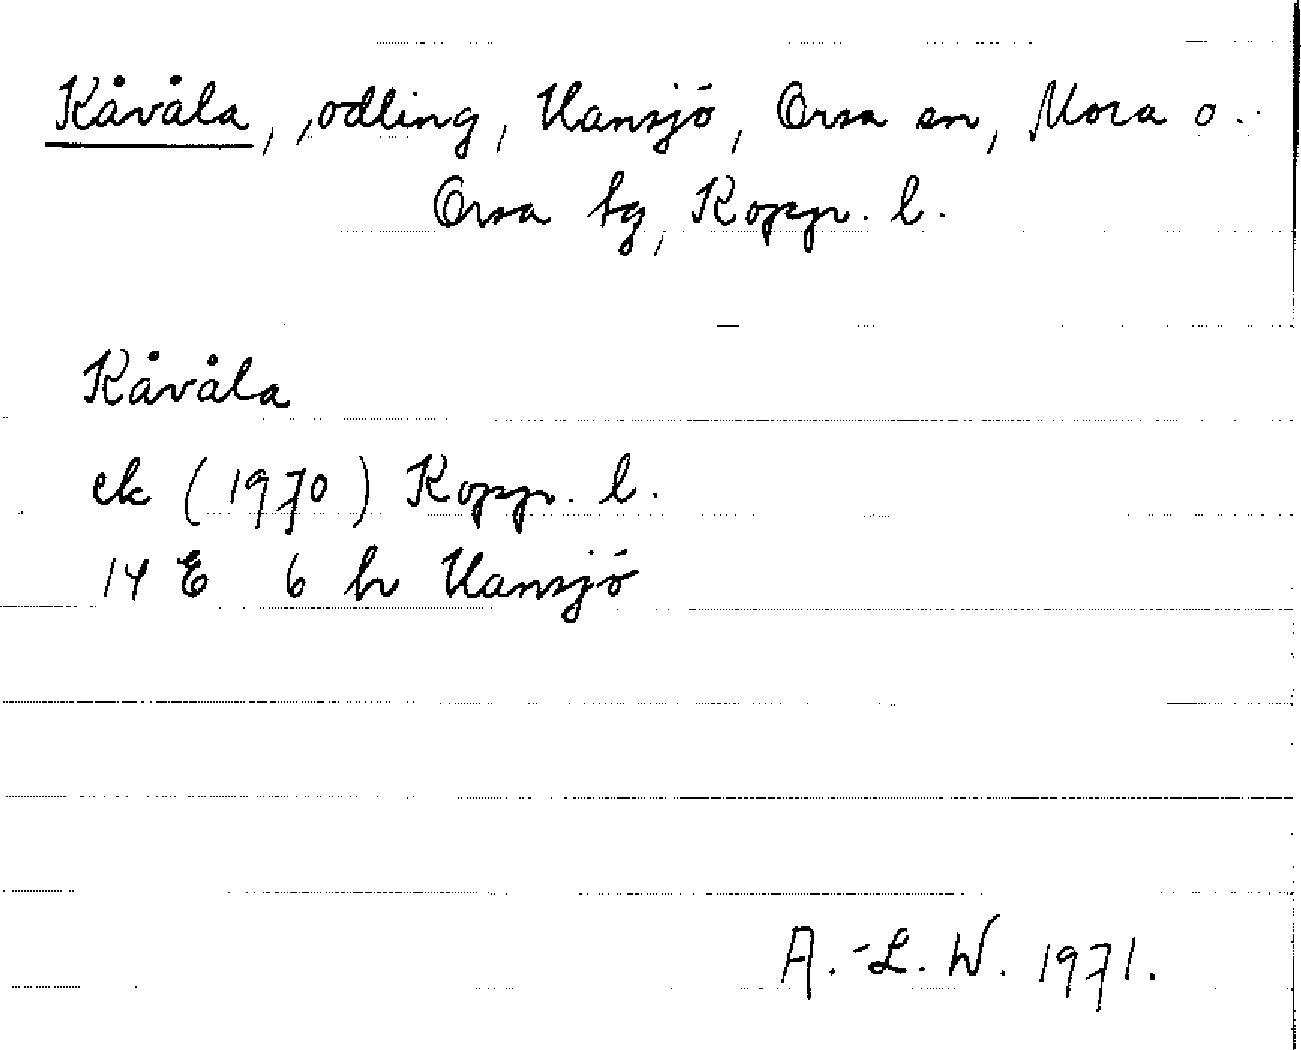 Kåvåla, odling, Hansjö, Orsa sn, Mora o.
Orsa tg, Koppr. l.
Kåvåla
ek (1970) Koppr. l.
14 E 6 h Hansjö
A.-L. W. 1971.